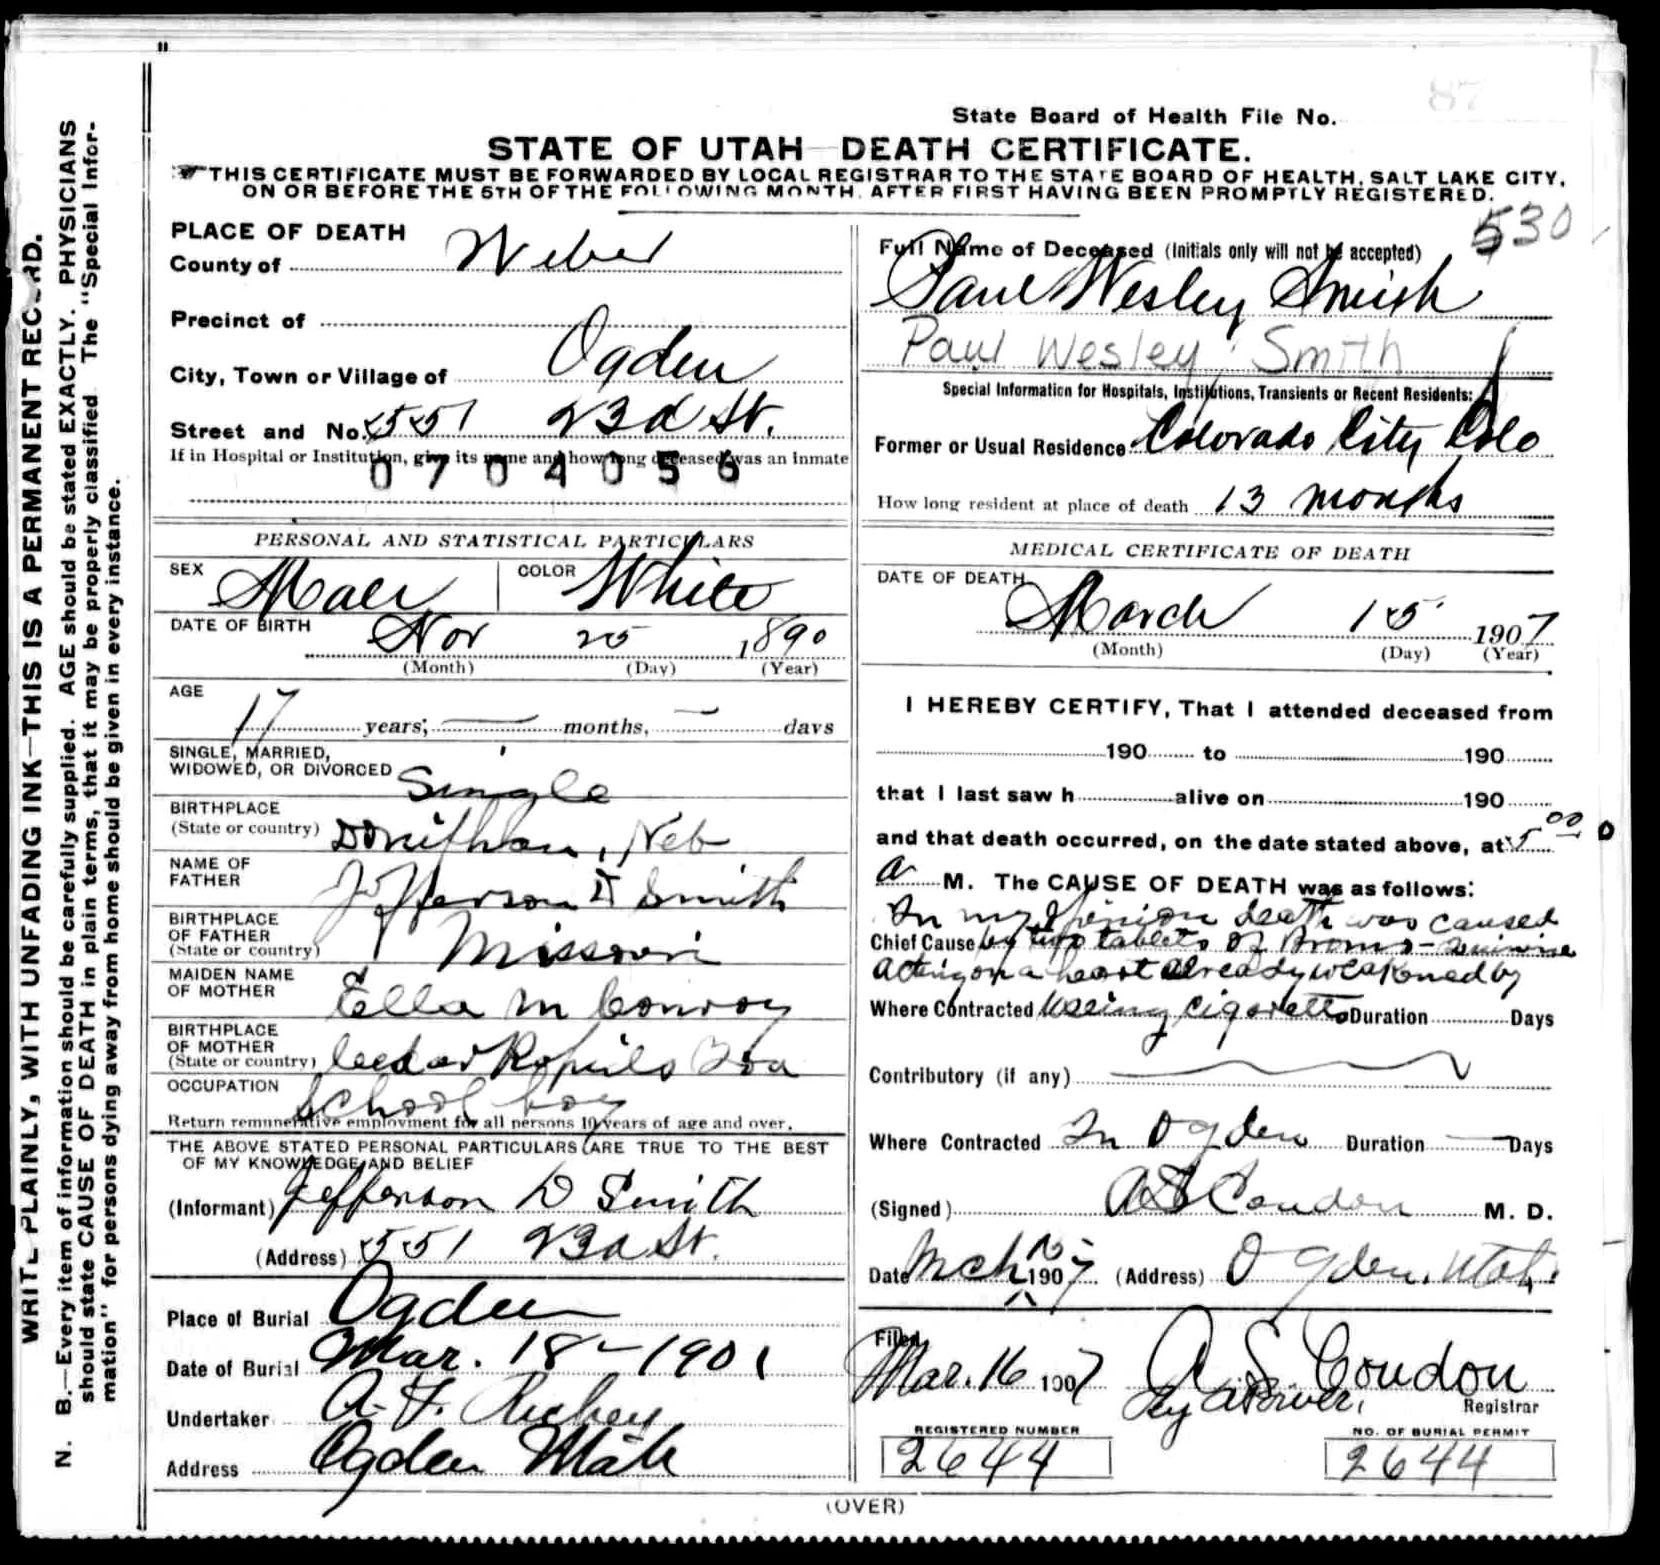 WRITE PLAINLY, WITH UNFADING INK—THIS IS A PERMANENT RECORD.
N. B.—Every item of information should be carefully supplied. AGE should be stated EXACTLY. PHYSICIANS
should state CAUSE OF DEATH in plain terms, that it may be properly classified. The "Special Infor-
mation" for persons dying away from home should be given in every instance.
87
State Board of Health File No.
STATE OF UTAH—DEATH CERTIFICATE.
THIS CERTIFICATE MUST BE FORWARDED BY LOCAL REGISTRAR TO THE STATE BOARD OF HEALTH, SALT LAKE CITY,
ON OR BEFORE THE 5TH OF THE FOLLOWING MONTH, AFTER FIRST HAVING BEEN PROMPTLY REGISTERED.
530
PLACE OF DEATH
County of Weber
Precinct of
City, Town or Village of Ogden
Street and No. 551 23d St.
If in Hospital or Institution, give its name and how long deceased was an inmate
0704056
PERSONAL AND STATISTICAL PARTICULARS
SEX Male COLOR White
DATE OF BIRTH Nov 25 1890
(Month) (Day) (Year)
AGE
17 years, — months, — days
SINGLE, MARRIED,
WIDOWED, OR DIVORCED Single
BIRTHPLACE
(State or country) Doniphan, Neb
NAME OF
FATHER Jefferson D Smith
BIRTHPLACE
OF FATHER
(State or country) Missouri
MAIDEN NAME
OF MOTHER Ella M Conroy
BIRTHPLACE
OF MOTHER
(State or country) Cedar Rapids Ioa
OCCUPATION School boy
Return remunerative employment for all persons 10 years of age and over.
THE ABOVE STATED PERSONAL PARTICULARS ARE TRUE TO THE BEST
OF MY KNOWLEDGE AND BELIEF
(Informant) Jefferson D Smith
(Address) 551 23d St.
Place of Burial Ogden
Date of Burial Mar. 18—1907
Undertaker A. J. Richey
Address Ogden Utah
Full Name of Deceased (Initials only will not be accepted)
Paul Wesley Smith
Paul Wesley Smith
Special Information for Hospitals, Institutions, Transients or Recent Residents:
Former or Usual Residence Colorado City Colo
How long resident at place of death 13 months
MEDICAL CERTIFICATE OF DEATH
DATE OF DEATH
March 15 1907
(Month) (Day) (Year)
I HEREBY CERTIFY, That I attended deceased from
190 to 190
that I last saw h alive on 190
and that death occurred, on the date stated above, at 5 00
a M. The CAUSE OF DEATH was as follows:
In my opinion death was caused
Chief Cause by two tablets of Bromo-Quinine
acting on a heart already weakened by
Where Contracted useing cigaretts Duration Days
Contributory (if any)
Where Contracted In Ogden Duration — Days
(Signed) A S Condon M. D.
Date Mch 15 1907 (Address) Ogden, Utah.
Filed
Mar. 16 1907 A S Condon
By Registrar
REGISTERED NUMBER NO. OF BURIAL PERMIT
2644 2644
(OVER)